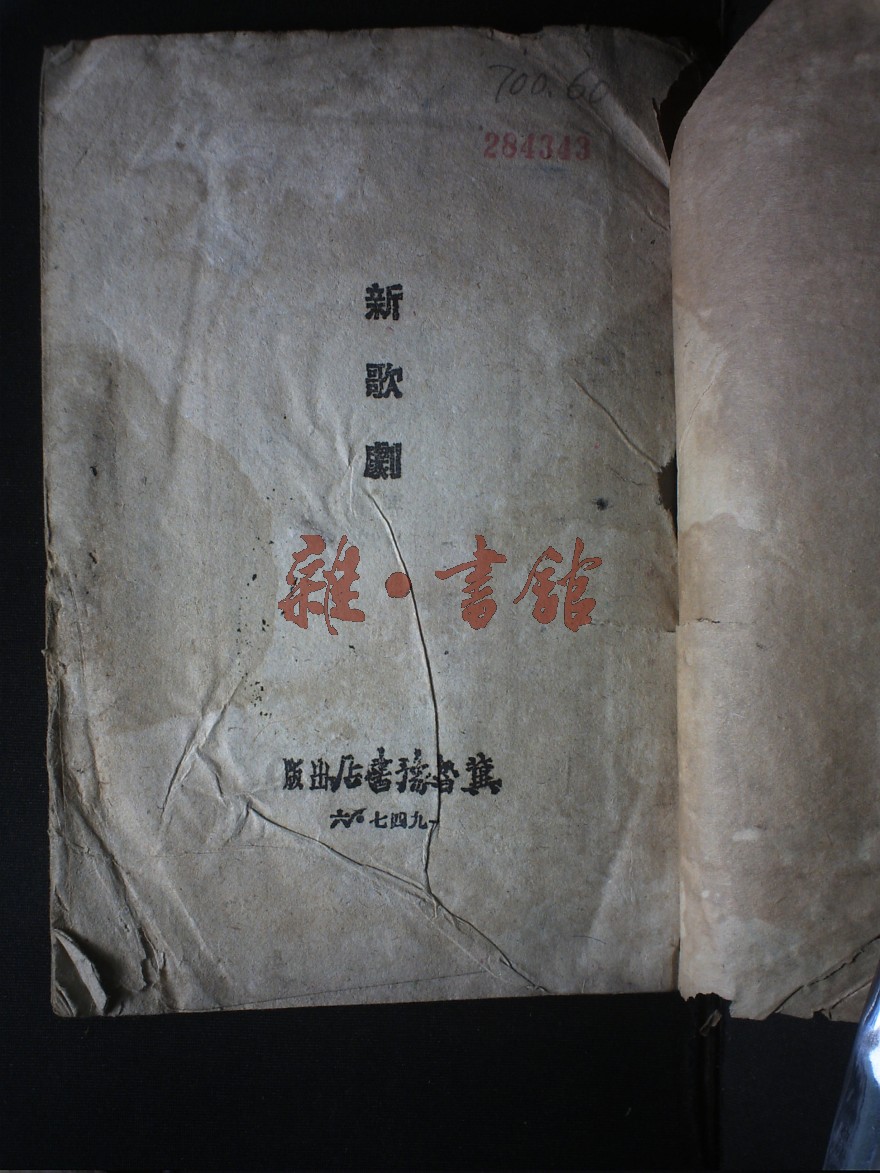 700.60
284343
新歌劇
雜·書館
冀魯豫書店出版
一九四七·六